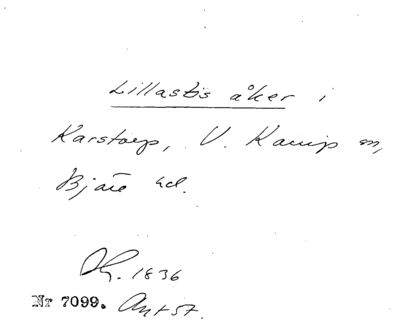 Lillastis åker i
Karstorp, V. Karup sn,
Bjäre hd.
1836
Nr 7099. Ant st.